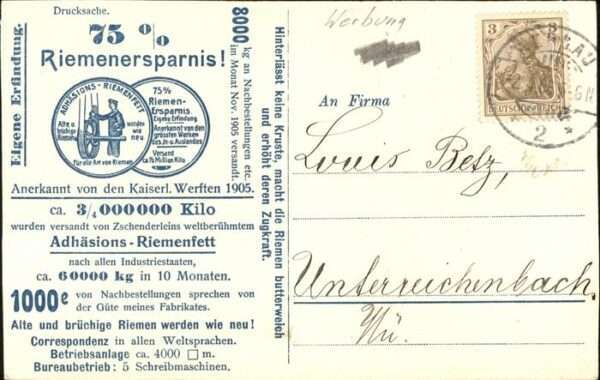 Drucksache.
75 %
Riemenersparnis!
Eigene Erfindung.
8000 kg an Nachbestellungen etc.
im Monat Nov. 1905 versandt.
ADHÄSIONS-RIEMENFETT
Alte u. brüchige Riemen
werden wie neu
Für alle Art von Riemen
75%
Riemen-
Ersparnis
Eigene Erfindung
Anerkannt von den
grössten Werken
des Jn- u. Auslandes
Versand
Ca ¾ Million Kilo
Anerkannt von den Kaiserl. Werften 1905.
ca. 3/4 000000 Kilo
wurden versandt von Zschenderleins weltberühmtem
Adhäsions-Riemenfett
nach allen Industriestaaten,
ca. 60000 kg in 10 Monaten.
1000e von Nachbestellungen sprechen von
der Güte meines Fabrikates.
Alte und brüchige Riemen werden wie neu!
Correspondenz in allen Weltsprachen.
Betriebsanlage ca. 4000 □ m.
Bureaubetrieb: 5 Schreibmaschinen.
Hinterlässt keine Kruste, macht die Riemen butterweich
und erhöht deren Zugkraft.
Werbung
3
DEUTSCHES REICH
2
An Firma
Louis Betz,
Unterreichenbach
Wü.